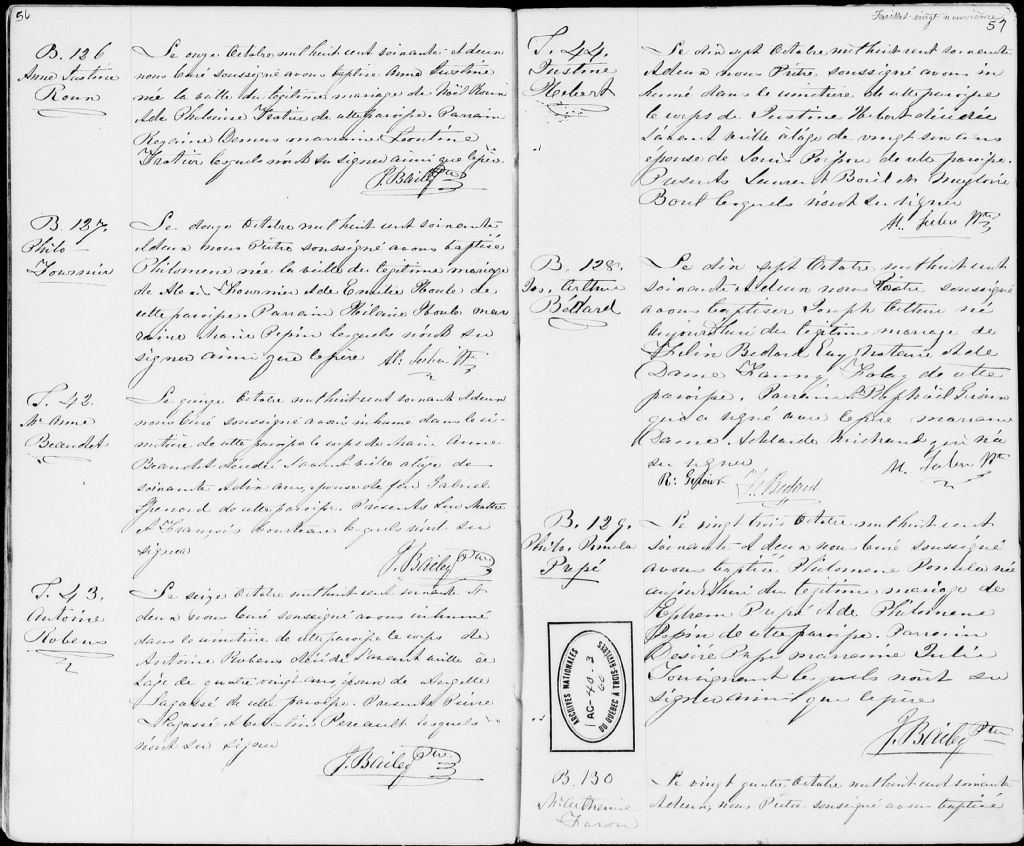 56
B. 126
Anne Justine
Roux
Le onze Octobre mil huit cent soixante et deux
nous Curé soussigné avons baptisé Anne Justine
née la veille du légitime mariage de Noël Roux
& de Philomène de cette paroisse. Parrain
marraine Léontine
lesquels n'ont su signer ainsi que le père
J. Bailey Ptre
B. 127.
Philo
Fournier
Le douze Octobre mil huit cent soixante
& deux nous Prêtre soussigné avons baptisé
Philomene née la veille du légitime mariage
de Fournier & de Emelie Houle de
cette paroisse. Parrain Hilaire Houle mar
raine Marie Pepin lesquels n'ont su
signer ainsi que le père
S. 42.
M. Anne
Beaudet
Le quinze Octobre mil huit cent soixante & deux
nous Curé soussigné avons inhumé dans le ci-
metière de cette paroisse le corps de Marie Anne
Beaudet décédée l'avant veille à l'âge de
soixante & dix ans, épouse de feu Gabriel
Spenard de cette paroisse. Presents
& François lesquels n'ont su
signer
J. Bailey Ptre
S. 43.
Antoine
Robens
Le seize Octobre mil huit cent soixante et
deux nous Curé soussigné avons inhumé
dans le cimetière de cette paroisse le corps de
Antoine Robens décédé l'avant veille à
l'age de quatre vingt ans, époux de Angelle
Lagassé de cette paroisse. Presents Pierre
Lagassé & Perreault lesquels
n'ont su signer
J. Bailey Ptre
Feuillet vingt neuvième
57
S. 44.
Justine
Hebert
Le dix sept Octobre mil huit cent soixante
& deux nous Prêtre soussigné avons in
humé dans le cimetière de cette paroisse
le corps de Justine Hebert décédée
l'avant veille à l'âge de vingt six ans
épouse de Louis de cette paroisse.
Presents Laurent
lesquels n'ont su signer
B. 128.
Jos. Arthur
Bédard
Le dix sept Octobre mil huit cent
soixante & deux nous Prêtre soussigné
avons baptisé Joseph Arthur né
aujourd'hui du légitime mariage de
Bedard Ecuy. Notaire & de
Dame Fanny de cette
paroisse. Parrain Raphaël Giroux
qui a signé avec le père marraine
Dame Adelaide Michaud qui n'a
su signer
R. Giroux
Bedard
B. 129.
Philo. Pomela
Pepé
Le vingt trois Octobre mil huit cent
soixante & deux nous Curé soussigné
avons baptisé Philomene Pomela née
aujourd'hui du légitime mariage de
Ephrem Pepé & de Philomene
Pepin de cette paroisse. Parrain
Désiré Pepé marraine Julie
lesquels n'ont su
signer ainsi que le père
J. Bailey Ptre
ARCHIVES NATIONALES
DU QUÉBEC À TROIS-RIVIÈRES
B. 130
Le vingt quatre Octobre mil huit cent soixante
& deux, nous Prêtre soussigné avons baptisé